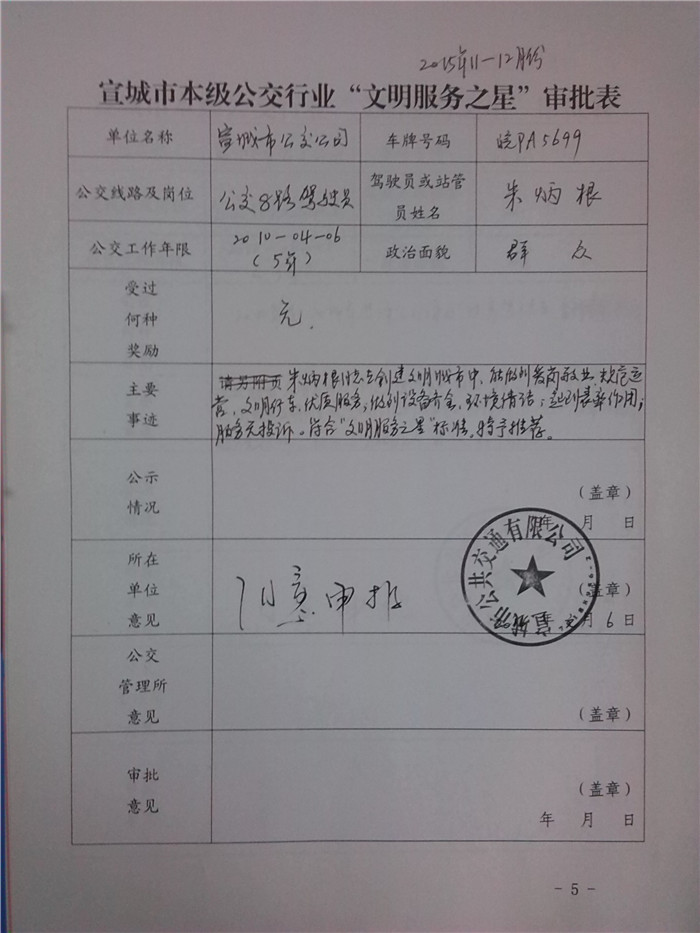 2015年11-12月份
宣城市本级公交行业“文明服务之星”审批表
单位名称 宣城市公交公司 车牌号码 皖PA5699
公交线路及岗位 公交8路驾驶员 驾驶员或站管
员姓名 朱炳根
公交工作年限 2010-04-06
(5年) 政治面貌 群众
受过
何种
奖励 无.
主要
事迹 请另附页 朱炳根同志在创建文明城市中,能做到爱岗敬业,规范运
营,文明行车,优质服务,做到设备齐全,环境清洁;起到表率作用;
服务无投诉。符合“文明服务之星”标准,特予推荐。
公示
情况 (盖章)
年 月 日
所在
单位
意见 同意申报 (盖章)
年 月 6 日
市公共交通有限公司
公交
管理所
意见 (盖章)
审批
意见 (盖章)
年 月 日
- 5 -